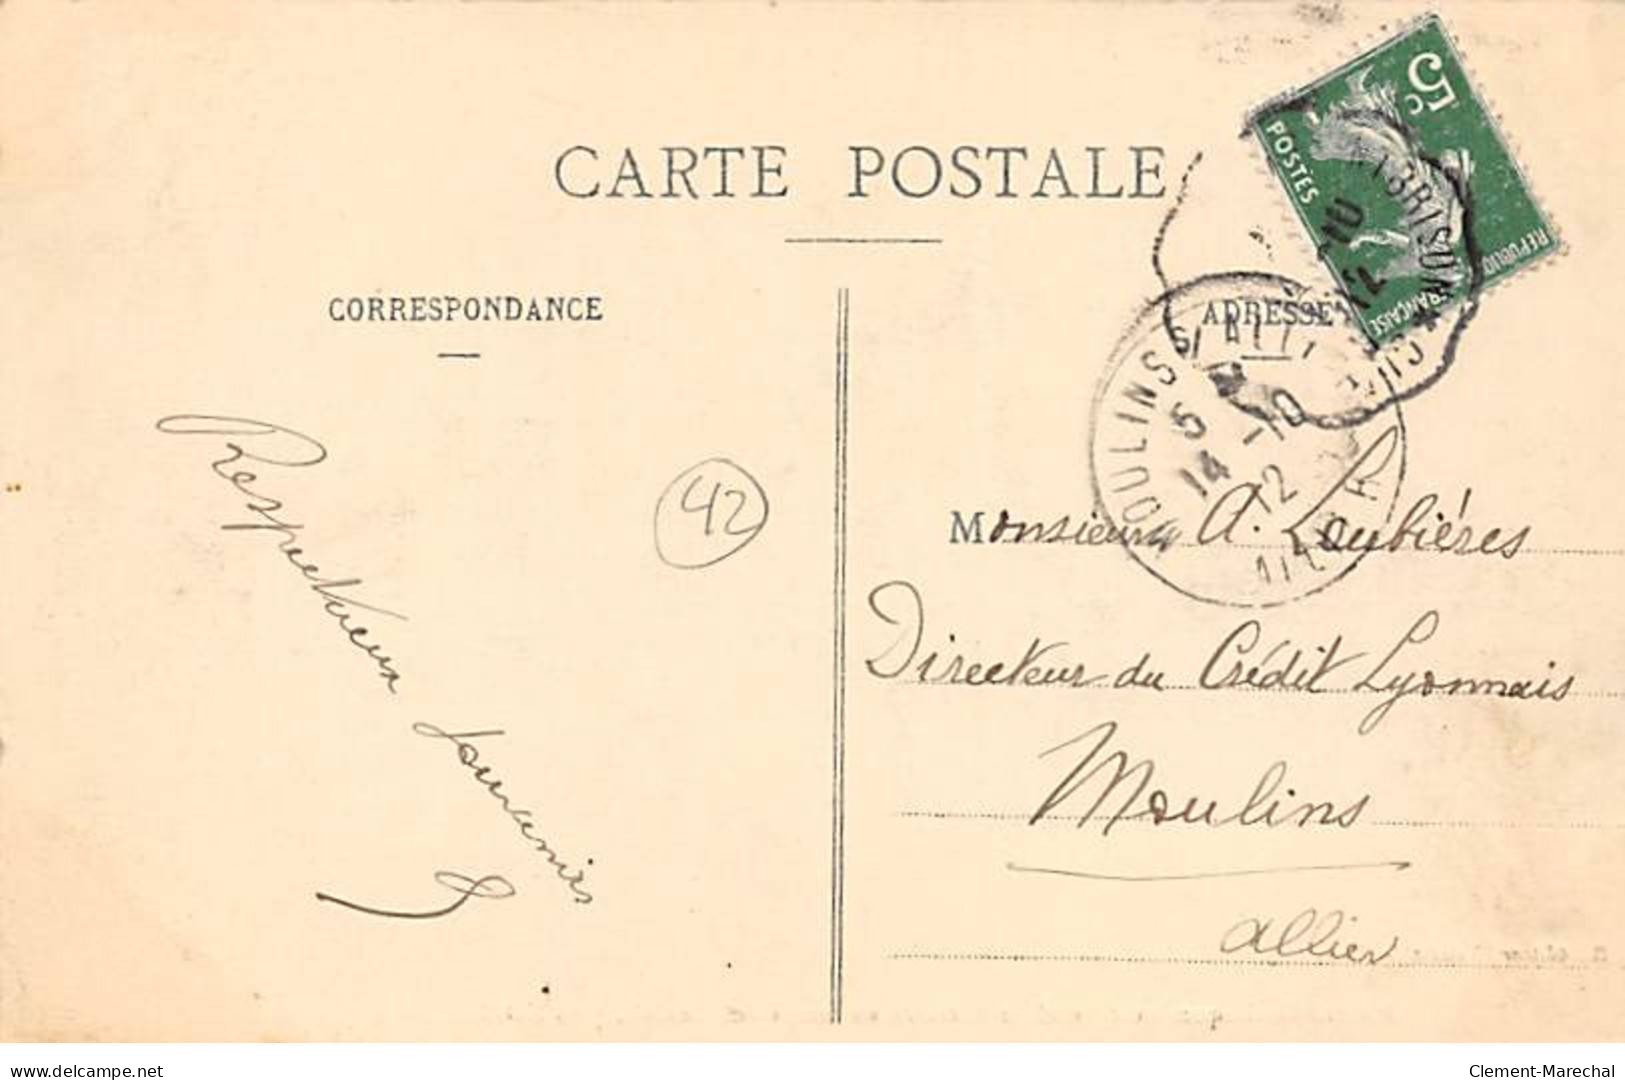 CARTE POSTALE
CORRESPONDANCE
ADRESSE
5c
POSTES
RÉPUBLIQUE FRANÇAISE
MOULINS S/ ALLIER
5
14 -10
12
ALLIER
-10
12
Respectueux souvenirs
42
Monsieur A. Loubiéres
Directeur du Crédit Lyonnais
Moulins
Allier
https://www.delcampe.net
Clement-Marechal